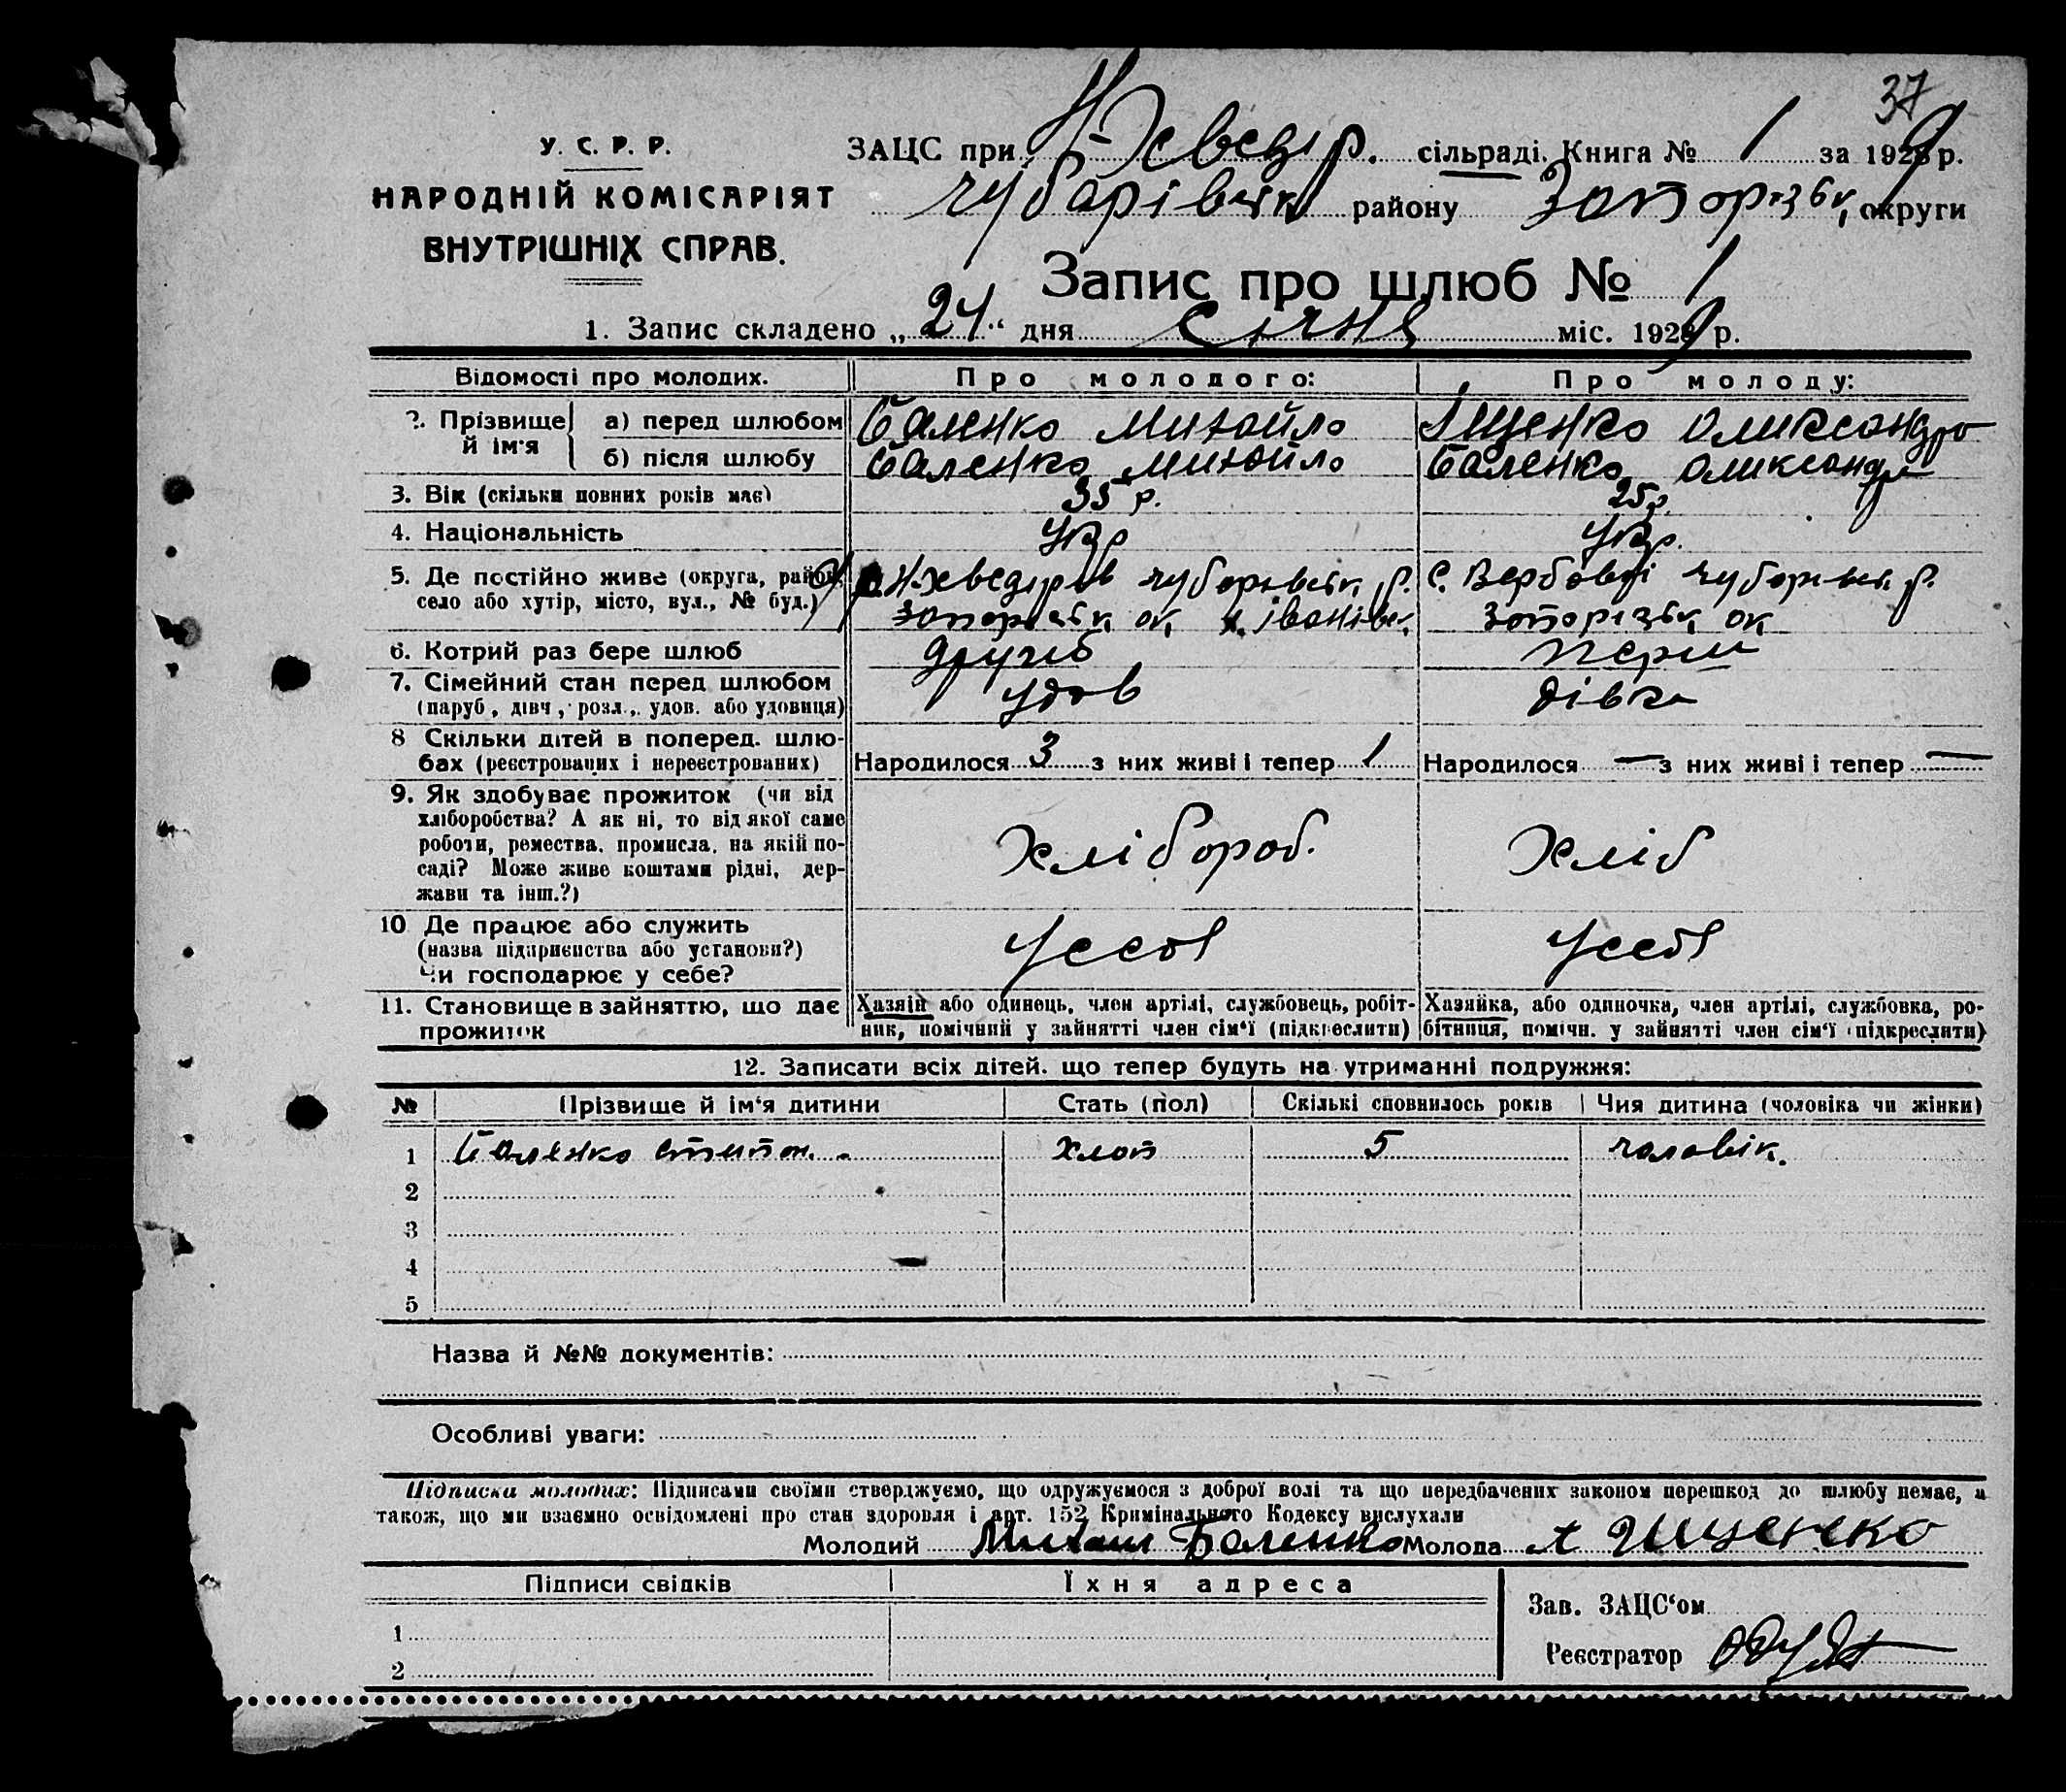 37
У. С. Р. Р.
НАРОДНІЙ КОМІСАРІЯТ
ВНУТРІШНІХ СПРАВ.
ЗАЦС при сільраді. Книга № 1 за 1929 р.
Чубарівськ району Запорізьк округи
Запис про шлюб № 1
1. Запис складено „24“ дня Січня міс. 1929 р.
Відомості про молодих. Про молодого: Про молоду:
2. Прізвище й ім'я а) перед шлюбом Баленко Михайло Іщенко Олександра
б) після шлюбу Баленко Михайло Баленко Олександра
3. Вік (скільки повних років має) 35 р. 25 р.
4. Національність Укр Укр.
5. Де постійно живе (округа, район, Чубарівськ р. с. Вербової Чубарівськ р.
село або хутір, місто, вул., № буд.) Запорізьк ок Запорізьк ок
6. Котрий раз бере шлюб другий перш
7. Сімейний стан перед шлюбом удов дівка
(паруб., дівч., розл., удов. або удовиця)
8 Скільки дітей в поперед. шлю-
бах (реєстрованих і нереєстрованих) Народилося 3 з них живі і тепер 1 Народилося — з них живі і тепер —
9. Як здобуває прожиток (чи від
хліборобства? А як ні, то від якої саме
роботи, ремества, промисла, на якій по- Хлібороб. Хліб
саді? Може живе коштами рідні, дер-
жави та інш.?)
10 Де працює або служить
(назва підприємства або установи?) Усебе Усебе
Чи господарює у себе?
11. Становище в зайняттю, що дає Хазяїн або одинець, член артілі, службовець, робіт- Хазяйка, або одиночка, член артілі, службовка, ро-
прожиток ник, помічний у зайнятті член сім'ї (підкреслити) бітниця, помічн. у зайнятті член сім'ї (підкреслити)
12. Записати всіх дітей, що тепер будуть на утриманні подружжя:
№ Прізвище й ім'я дитини Стать (пол) Скількі сповнилось років Чия дитина (чоловіка чи жінки)
1 Баленко Хлоп 5 чоловік.
2
3
4
5
Назва й №№ документів:
Особливі уваги:
Підписки молодих: Підписами своїми стверджуємо, що одружуємося з доброї волі та що передбачених законом перешкод до шлюбу немає, а
також, що ми взаємно освідомлені про стан здоровля і арт. 152 Кримінального Кодексу вислухали
Молодий Михаил Баленко Молода А Ищенко
Підписи свідків Їхня адреса
Зав. ЗАЦС'ом
1
Реєстратор
2